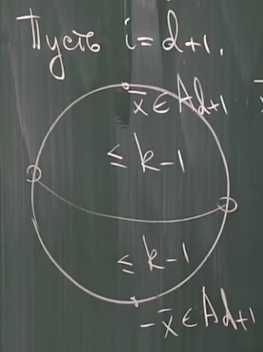 Пусть i=d+1.
x̄ ∈ A_{d+1}
≤ k-1
≤ k-1
-x̄ ∈ A_{d+1}